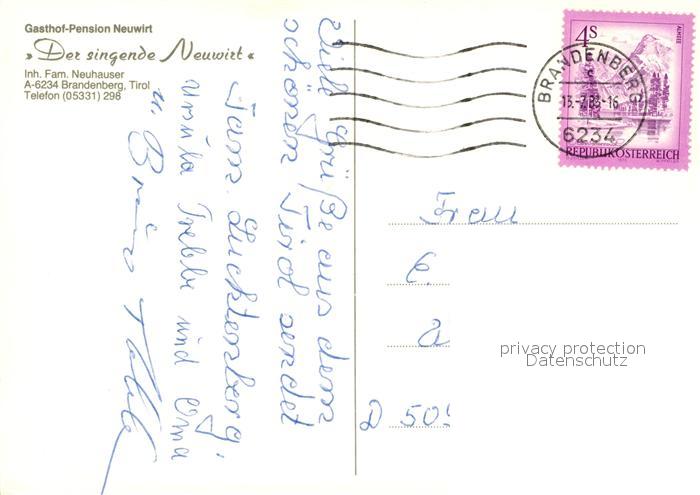 Gasthof-Pension Neuwirt
» Der singende Neuwirt «
Inh. Fam. Neuhauser
A-6234 Brandenberg, Tirol
Telefon (05331) 298
Viele Grüße aus dem
schönen Tirol sendet
Fam. Lichtenberg,
und Oma
u.
4s
ALMSEE
REPUBLIK ÖSTERREICH
BRANDENBERG
13.-7.83-16
6234
Frau
E.
a
D 50
privacy protection
Datenschutz